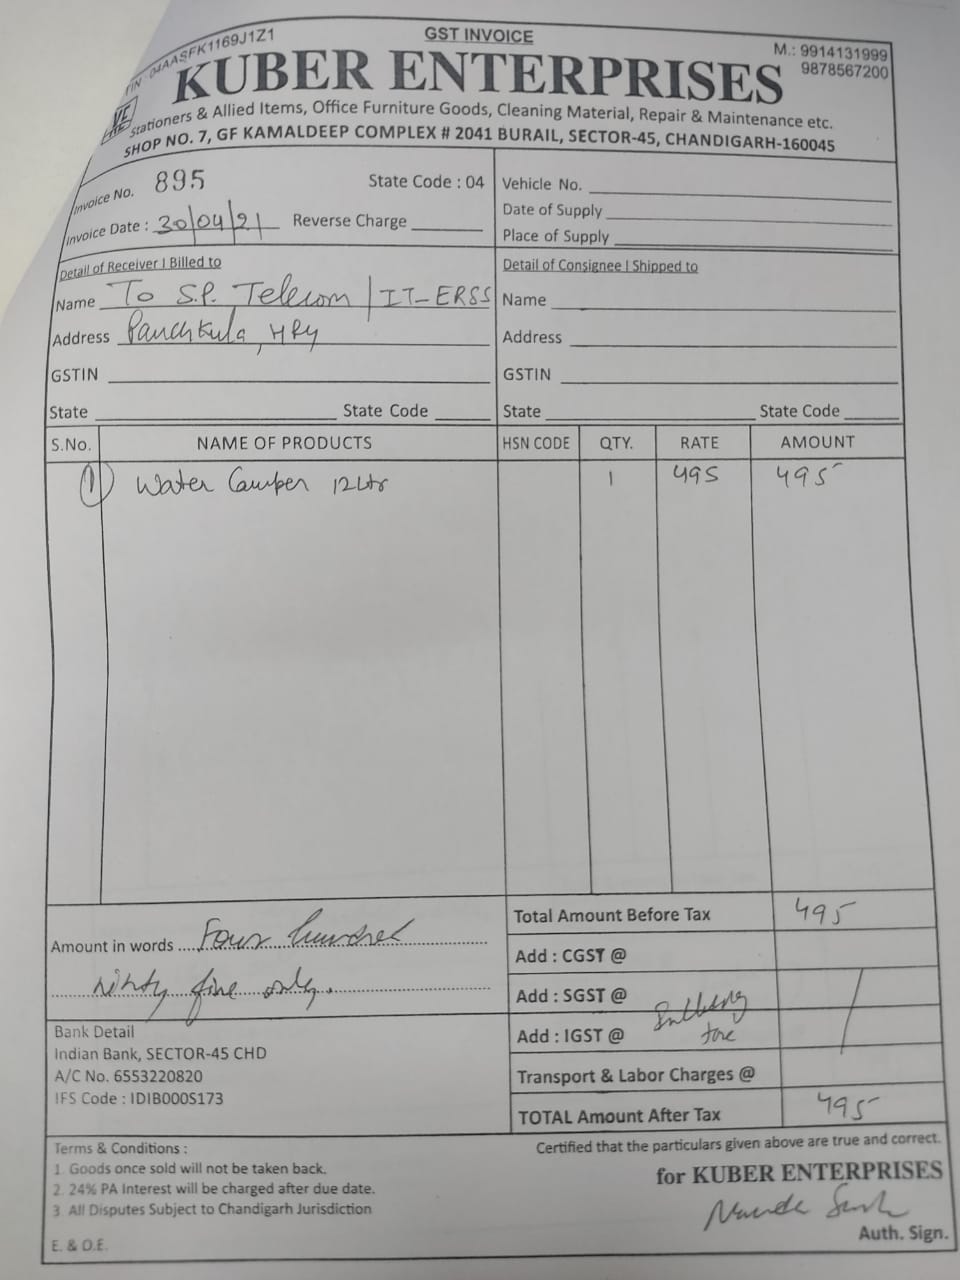 GST INVOICE
04AASFK1169J1Z1
M.: 9914131999
9878567200
KUBER ENTERPRISES
Stationers & Allied Items, Office Furniture Goods, Cleaning Material, Repair & Maintenance etc.
SHOP NO. 7, GF KAMALDEEP COMPLEX # 2041 BURAIL, SECTOR-45, CHANDIGARH-160045
Invoice No. 895 State Code : 04
Invoice Date : 30/04/21 Reverse Charge
Vehicle No.
Date of Supply
Place of Supply
Detail of Receiver | Billed to
Name To S.P. Telecom / IT-ERSS
Address Panchkula, HRy
GSTIN
State State Code
Detail of Consignee | Shipped to
Name
Address
GSTIN
State State Code
S.No. NAME OF PRODUCTS HSN CODE QTY. RATE AMOUNT
1 Water Camper 12Ltr 1 495 495
Amount in words Four hundred
ninty five only.
Total Amount Before Tax 495
Add : CGST @
Add : SGST @
Add : IGST @
Transport & Labor Charges @
TOTAL Amount After Tax 495
Bank Detail
Indian Bank, SECTOR-45 CHD
A/C No. 6553220820
IFS Code : IDIB000S173
Terms & Conditions :
1. Goods once sold will not be taken back.
2. 24% PA Interest will be charged after due date.
3. All Disputes Subject to Chandigarh Jurisdiction
E. & O.E.
Certified that the particulars given above are true and correct.
for KUBER ENTERPRISES
Auth. Sign.